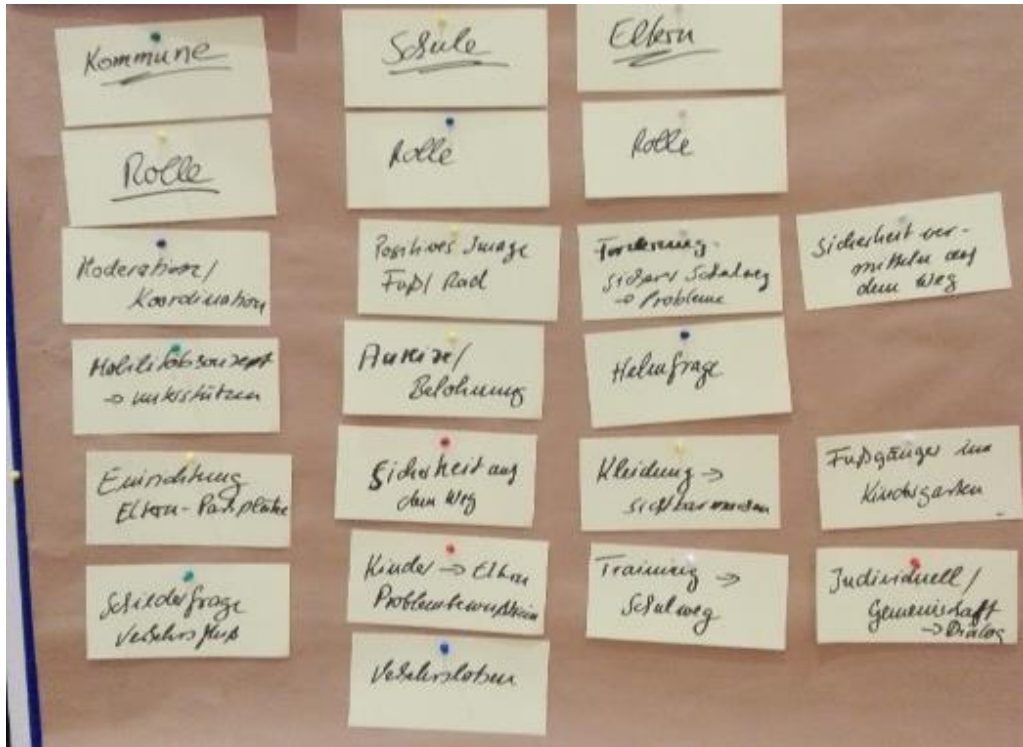 Kommune
Rolle
Moderation/
Koordination
Mobilitätskonzept
→ unterstützen
Einrichtung
Eltern-Parkplätze
Schilderfrage
Verkehrsfluß
Schule
Rolle
Positives Image
Fuß/Rad
Anreize/
Belohnung
Sicherheit auf
dem Weg
Kinder → Eltern
Problembewußtsein
Verkehrslotsen
Eltern
Rolle
Forderung
sicherer Schulweg
→ Probleme
Helmfrage
Kleidung →
sichtbar machen
Training →
Schulweg
Sicherheit ver-
mitteln auf
dem Weg
Fußgänger im
Kindergarten
Individuell/
Gemeinschaft
→ Dialog